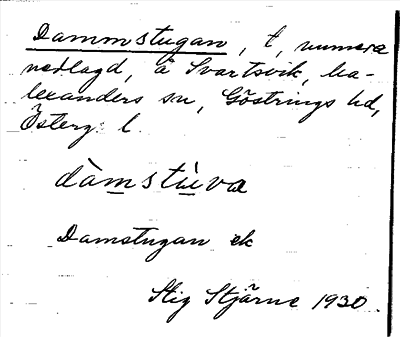 Dammstugan, t, numera
nedlagd, å Svartsvik, ka-
lexanders sn, Göstrings hd,
Österg. l.
dàmstùva
Damstugan ek
Stig Stjärne 1930.